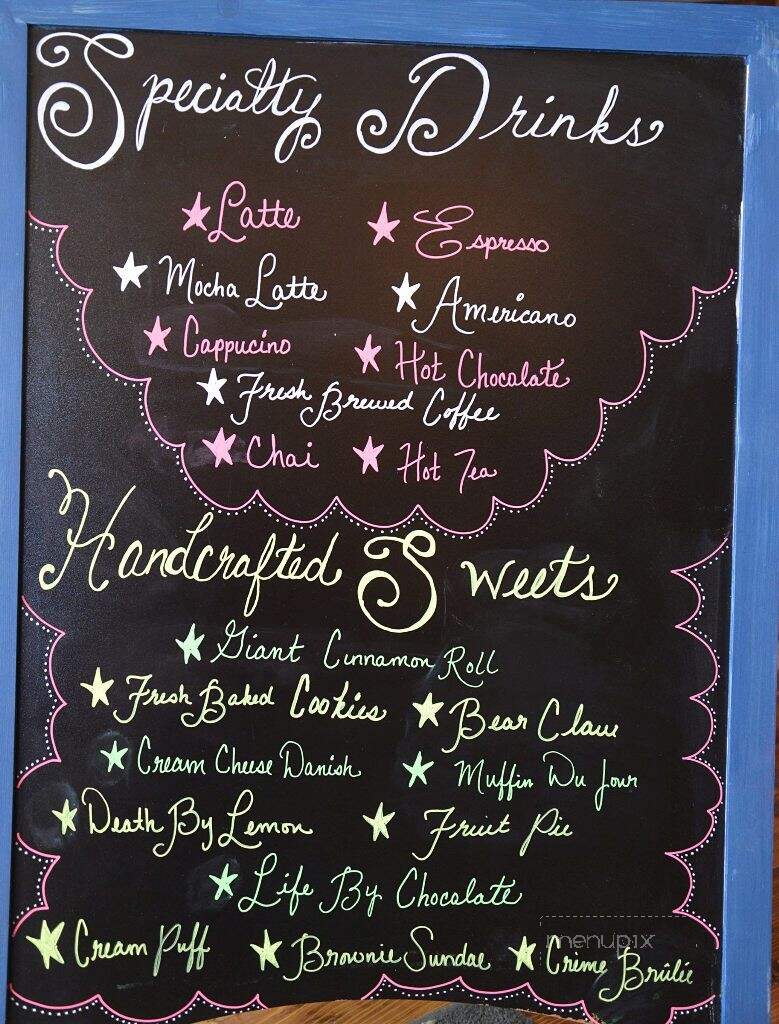 Specialty Drinks
Latte
Espresso
Mocha Latte
Americano
Cappucino
Hot Chocalate
Fresh Brewed Coffee
Chai
Hot Tea
Handcrafted Sweets
Giant Cinnamon Roll
Fresh Baked Cookies
Bear Claw
Cream Cheese Danish
Muffin Du Jour
Death By Lemon
Fruit Pie
Life By Chocalate
Cream Puff
Brownie Sundae
Crème Brûlée
menupix